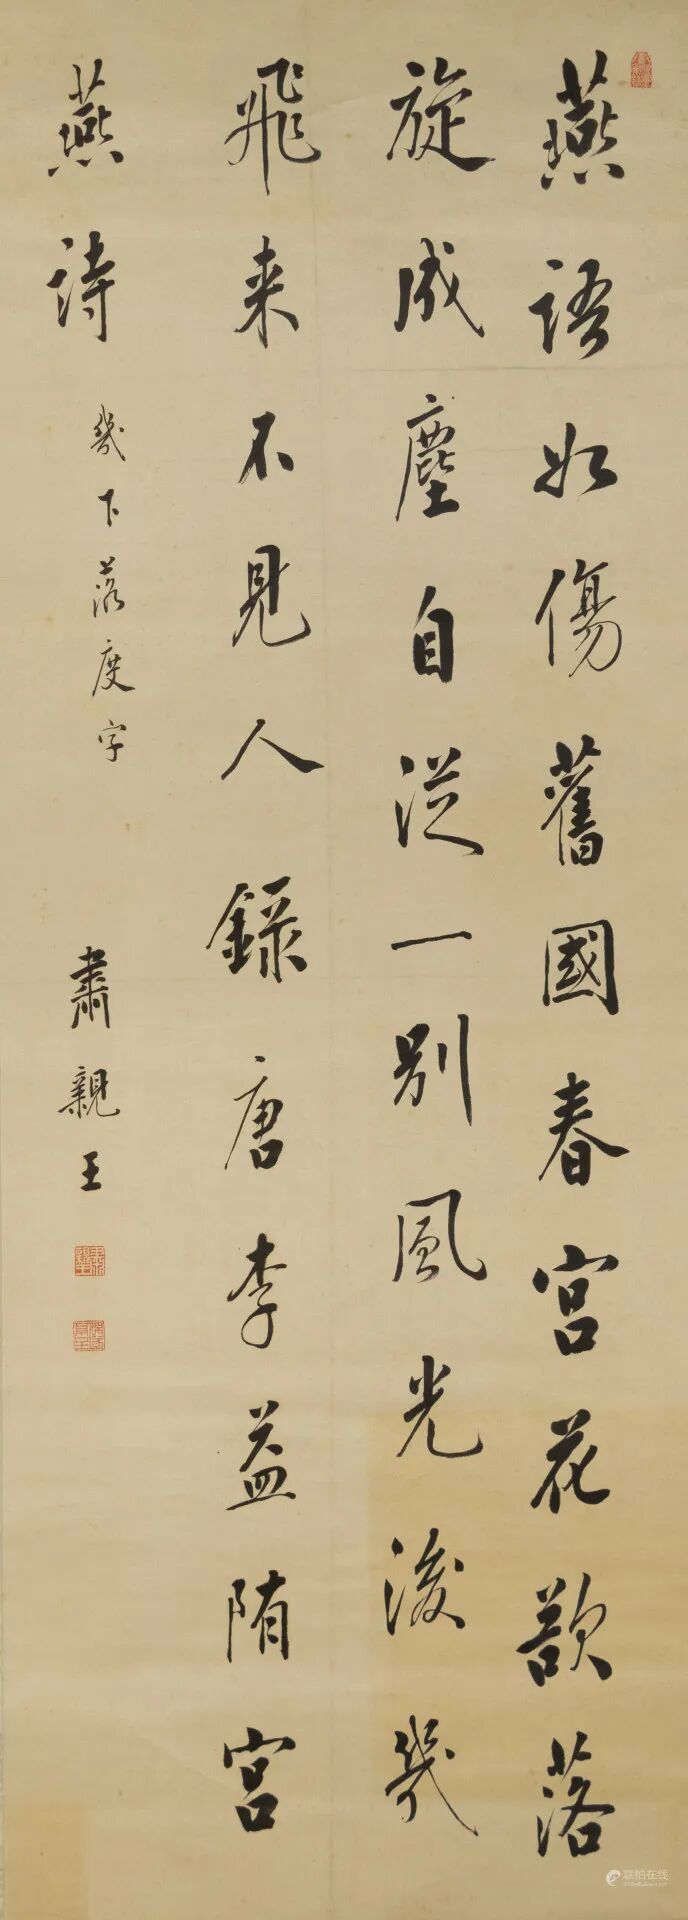 燕語如傷舊國春宮花欲落
旋成塵自從一別風光後幾
飛來不見人錄唐李益隋宮
燕詩
幾下落度字
肅親王
联拍在线